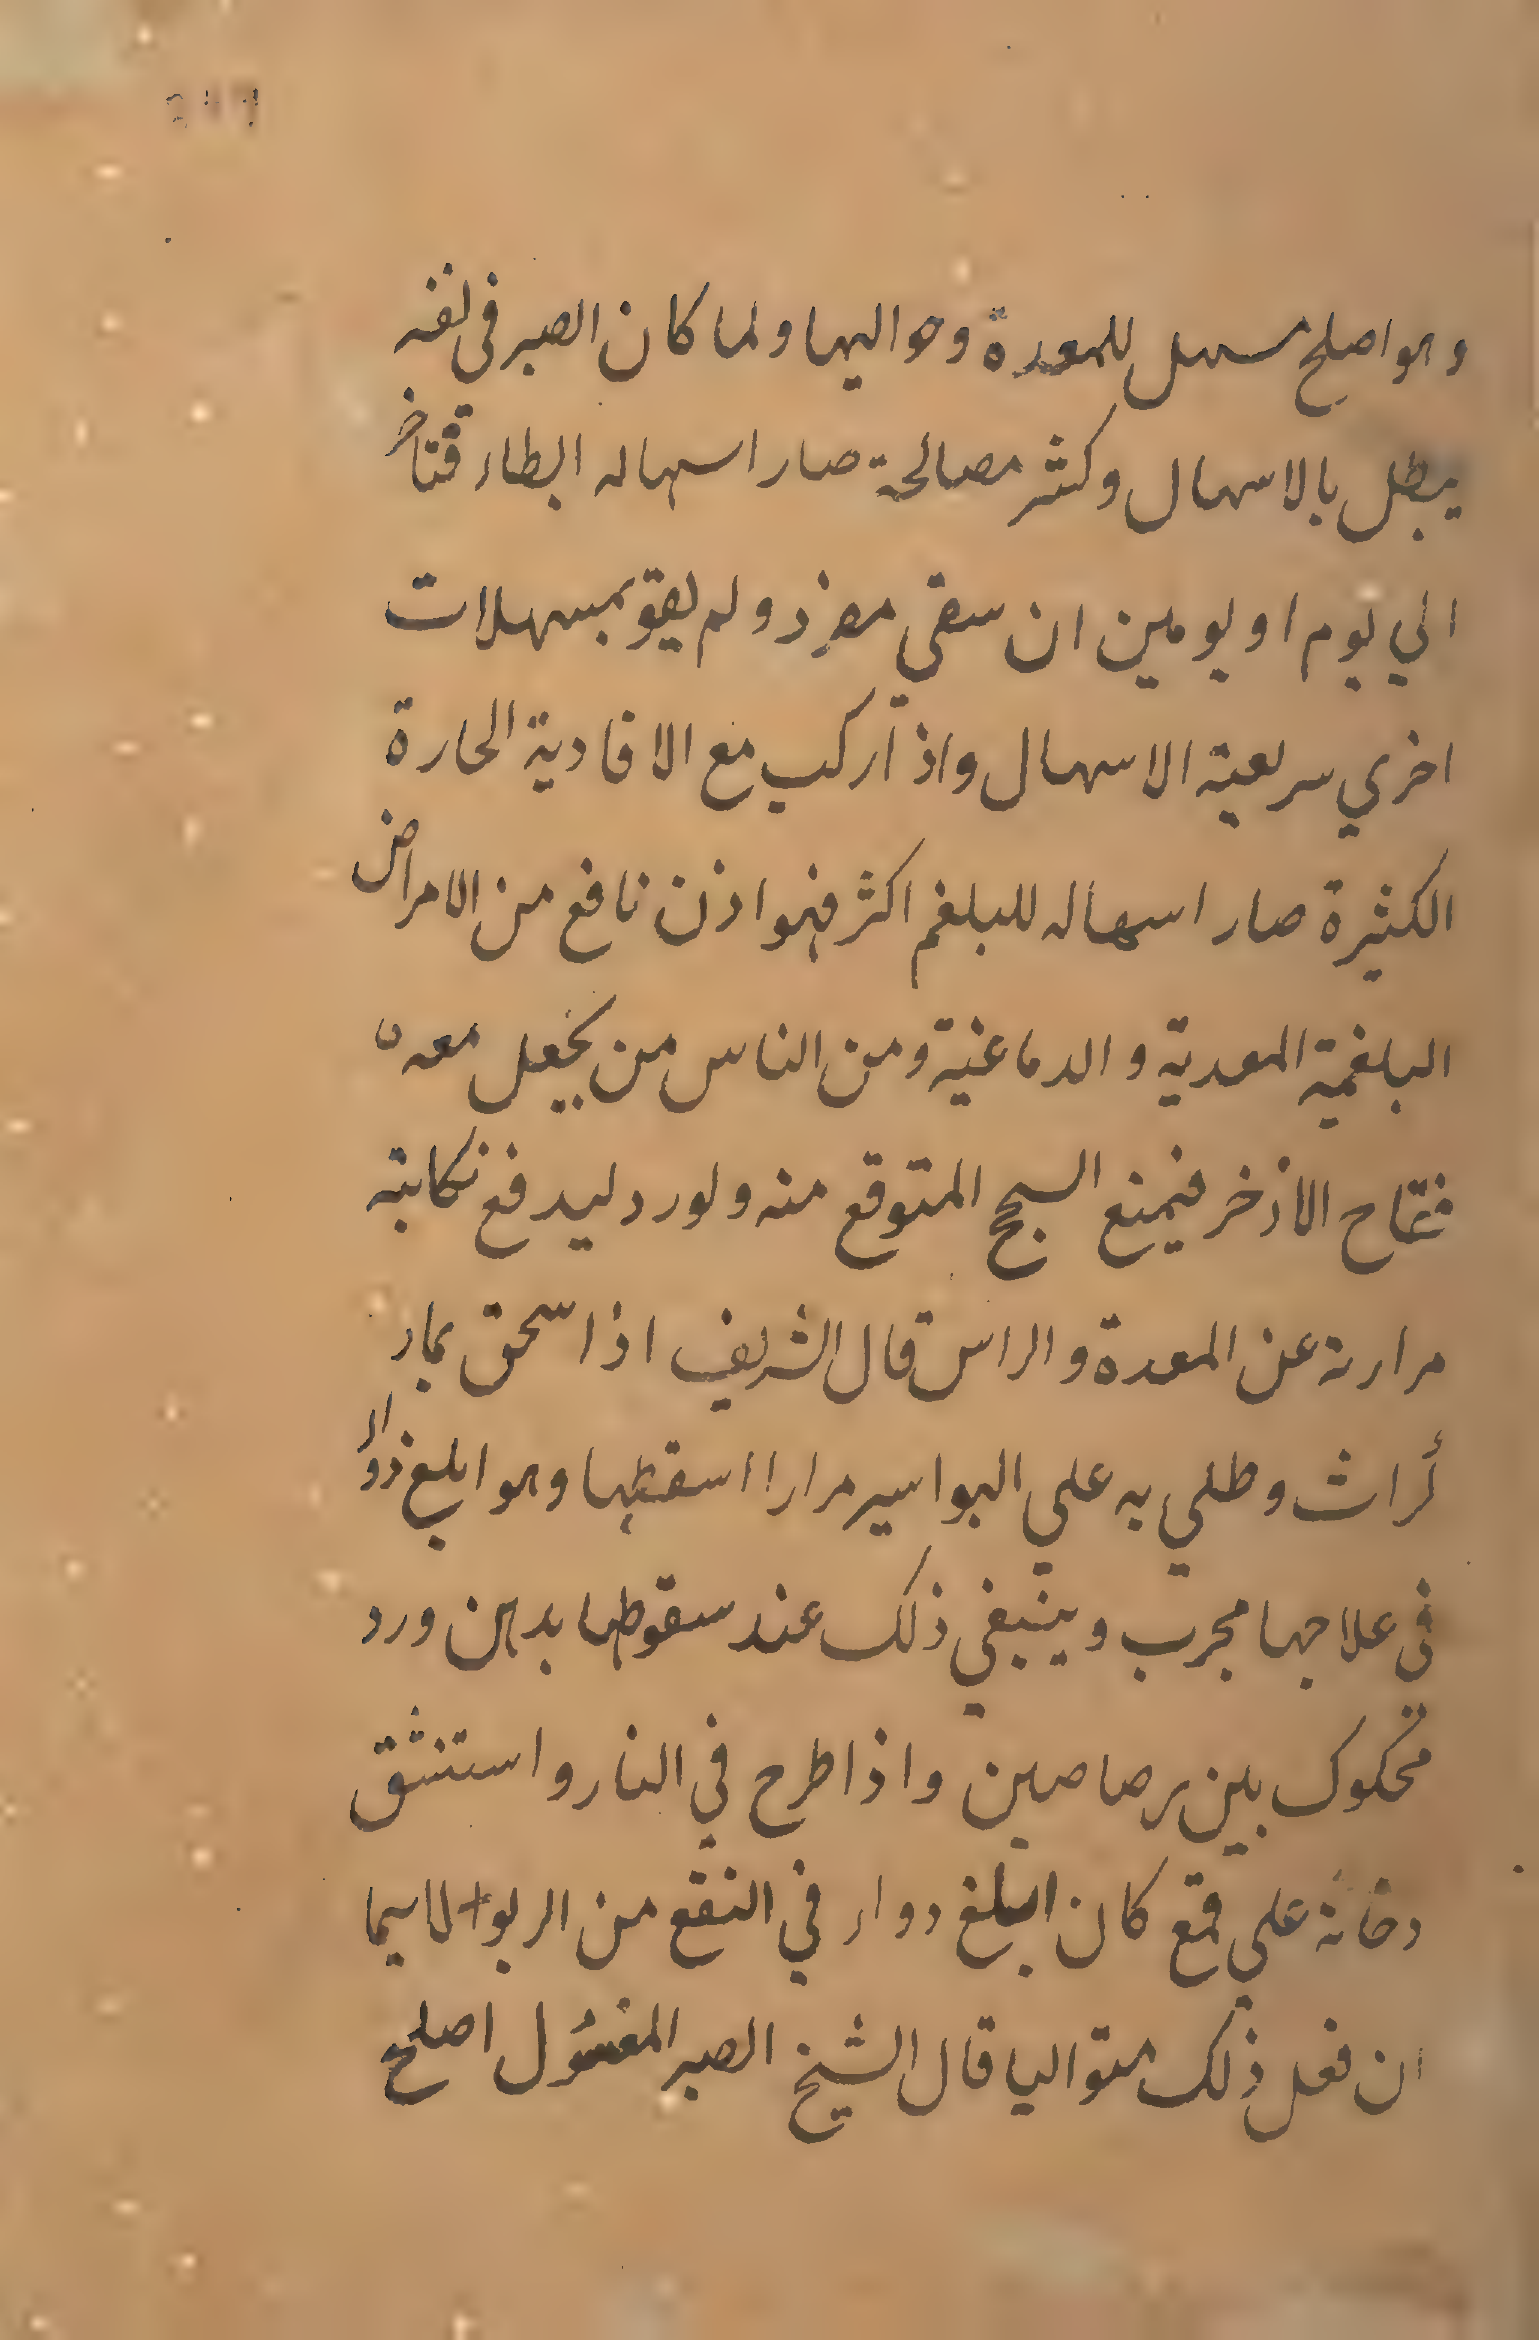 وهو اصلح مسهل للمعدة وحواليها ولما كان الصبر فى لفه
يبطل بالاسهال وكثر مصالحة صار اسهاله ابطاء فتاخر
الي يوم او يومين ان سقي مفرد ولم يقو بمسهلات
اخري سريعة الاسهال واذا ركب مع الافادية الحارة
الكثيرة صار اسهاله للبلغم اكثر فهو اذن نافع من الامراض
البلغمية المعدية والدماغية ومن الناس من يجعل معه
فقاح الاذخر فيمنع السحج المتوقع منه ولورد ليدفع نكايته
مرارته عن المعدة والراس قال الشريف اذا سحق بمار
كراث وطلي به علي البواسير مرارا اسقطها وهو ابلغ دواء
فى علاجها مجرب وينبغي ذلك عند سقوطها بدهن ورد
محكوك بين رصاصين واذا طرح في النار واستنشق
دخانة علي قمع كان ابلغ دواء في النفع من الربو لاسيما
ان فعل ذلك متواليا قال الشيخ الصبر المغسول اصلح